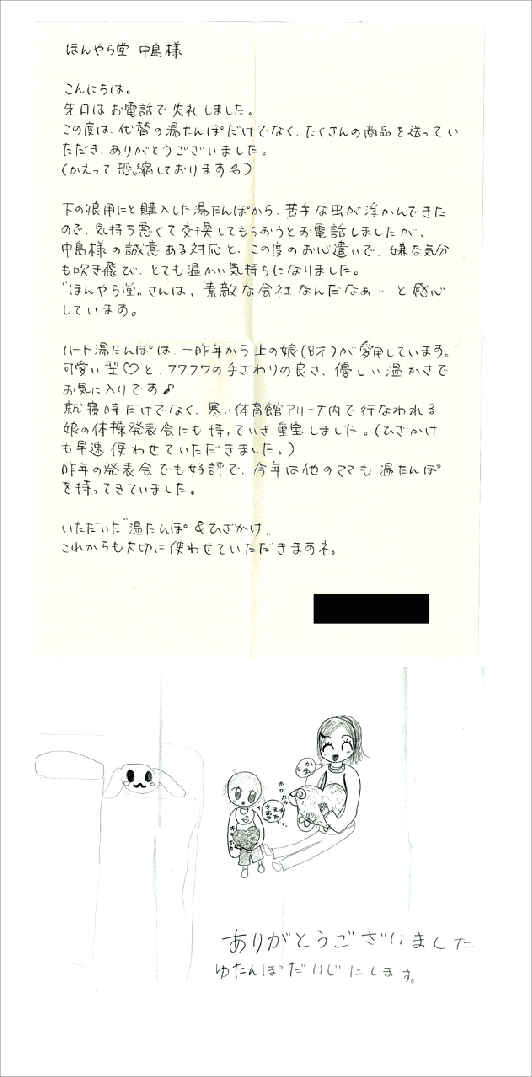 ほんやら堂 中島様
こんにちは。
先日はお電話で失礼しました。
この度は、代替の湯たんぽだけでなく、たくさんの商品を送ってい
ただき、ありがとうございました。
(かえって恐縮しております)
下の娘用にと購入した湯たんぽから、苦手な虫が浮かんできた
ので、気持ち悪くて交換してもらおうとお電話しましたが、
中島様の誠意ある対応と、この度のお心遣いで、嫌な気分
も吹き飛び、とても温かい気持ちになりました。
"ほんやら堂"さんは、素敵な会社なんだなぁ…と感心
しています。
ハート湯たんぽは、一昨年から上の娘(8才)が愛用しています。
可愛い型♡と、フワフワの手ざわりの良さ、優しい温かさで
お気に入りです♪
就寝時だけでなく、寒い体育館アリーナ内で行なわれる
娘の体操発表会にも持っていき重宝しました。(ひざかけ
も早速使わせていただきました。)
昨年の発表会でも好評で、今年は他のママも湯たんぽ
を持ってきていました。
いただいた湯たんぽ&ひざかけ、
これからも大切に使わせていただきますネ。
ありがとうございました
ゆたんぽだいじにします。